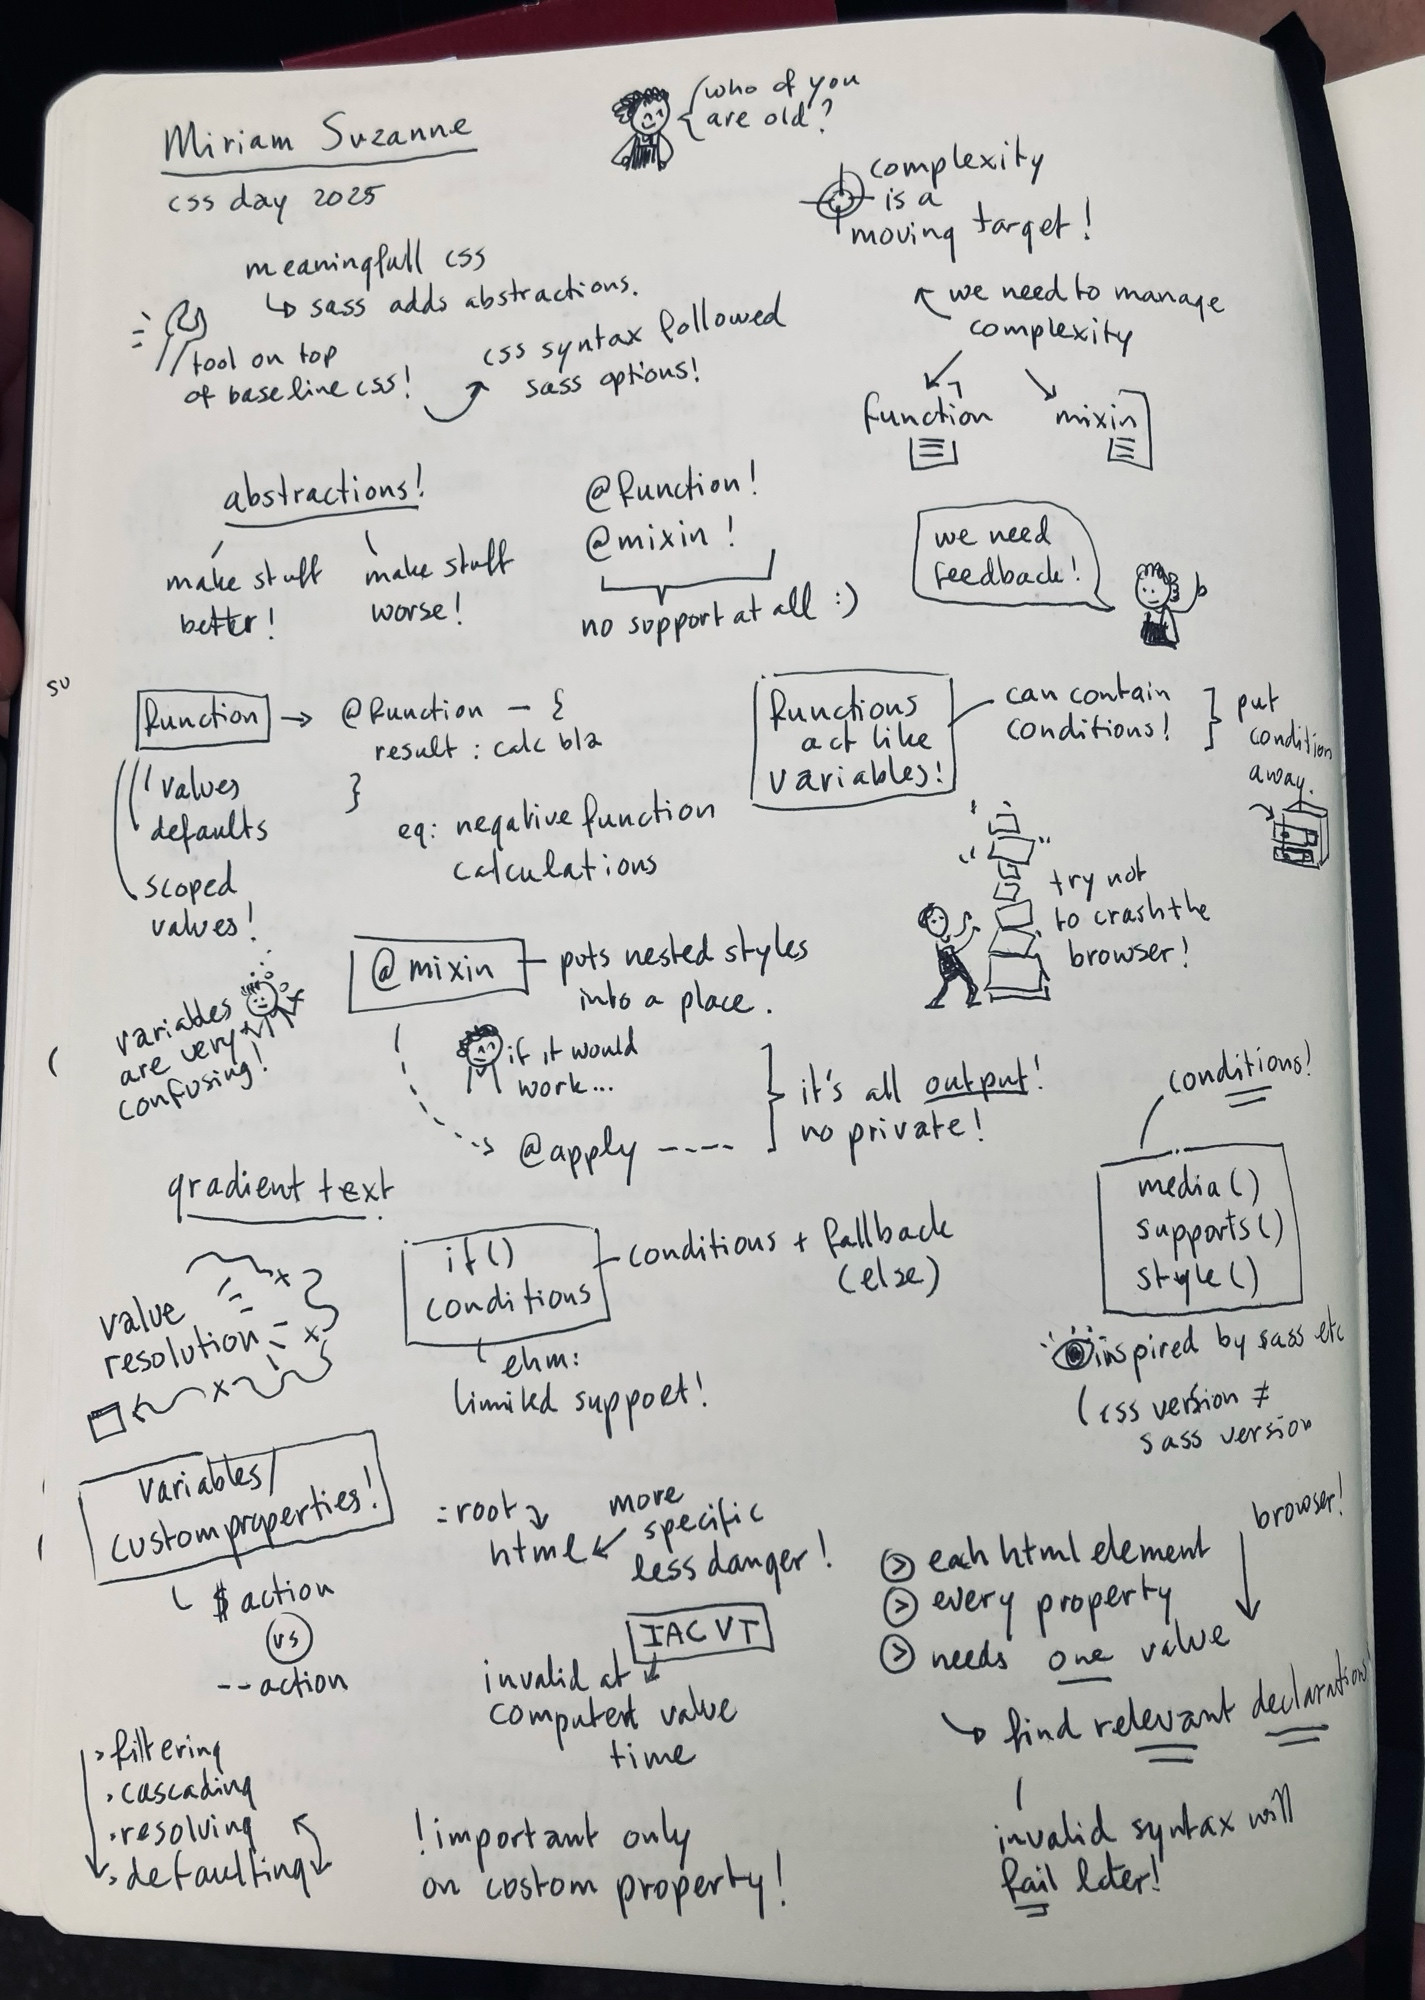 Miriam Suzanne
css day 2025
who of you
are old?
complexity
is a
moving target!
meaningfull css
↳ sass adds abstractions.
tool on top
of baseline css!
css syntax followed
sass options!
we need to manage
complexity
function
mixin
abstractions!
make stuff
better!
make stuff
worse!
@function!
@mixin!
no support at all :)
we need
feedback!
su
function → @function — {
result : calc bla
}
values
defaults
scoped
values!
eg: negative function
calculations
functions
act like
variables!
can contain
conditions!
put
condition
away.
try not
to crash the
browser!
variables
are very
confusing!
@mixin
puts nested styles
into a place.
if it would
work...
@apply ----
it's all output!
no private!
conditions!
media()
supports()
style()
gradient text
if()
conditions
conditions + fallback
(else)
ehm:
limited support!
value
resolution
inspired by sass etc
css version ≠
sass version
variables/
custom properties!
$ action
vs
--action
:root
html
more
specific
less danger!
IACVT
invalid at
computed value
time
browser!
each html element
every property
needs one value
↳ find relevant declarations
invalid syntax will
fail later!
filtering
cascading
resolving
defaulting
!important only
on costom property!